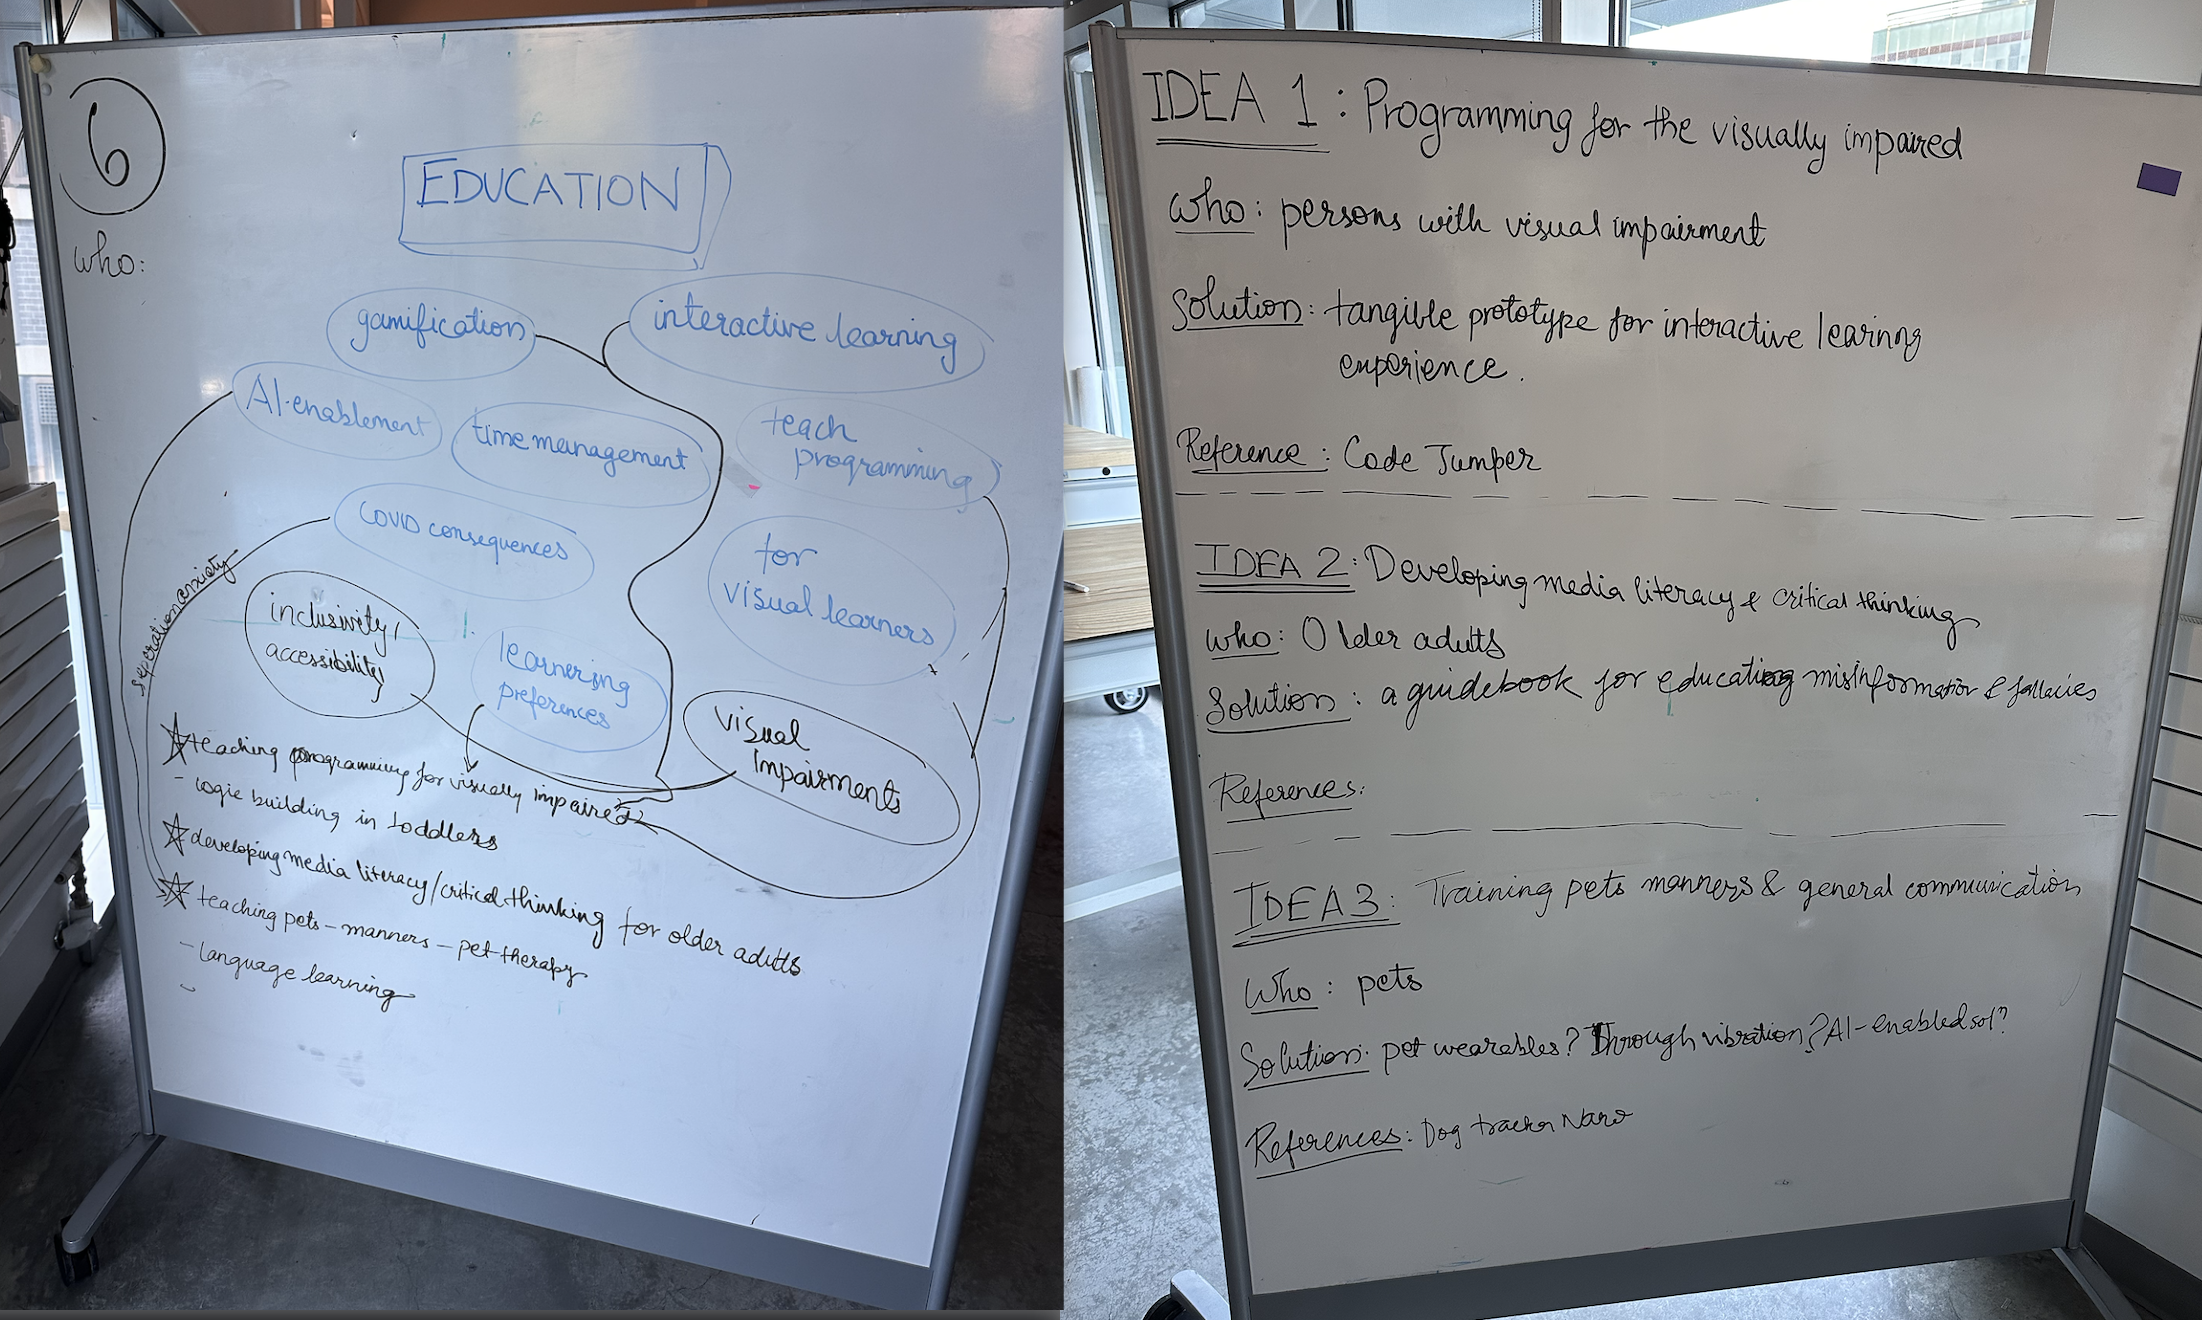 6
who:
EDUCATION
gamification
interactive learning
AI-enablement
time management
teach
programming
COVID consequences
for
visual learners
seperation anxiety
inclusivity,
accessibility
learnering
preferences
visual
impairments
teaching programming for visually impaired
- logic building in toddlers
developing media literacy/critical thinking for older adults
teaching pets - manners - pet therapy
- language learning
-
IDEA 1 : Programming for the visually impaired
who: persons with visual impairment
solution: tangible prototype for interactive learning
experience.
Reference : Code Jumper
IDEA 2: Developing media literacy & critical thinking
who: Older adults
Solution : a guidebook for educating misinformation & fallacies
References:
IDEA 3: Training pets manners & general communication
Who: pets
Solution: pet wearables? Through vibration? AI-enabled sol?
References: Dog tracker